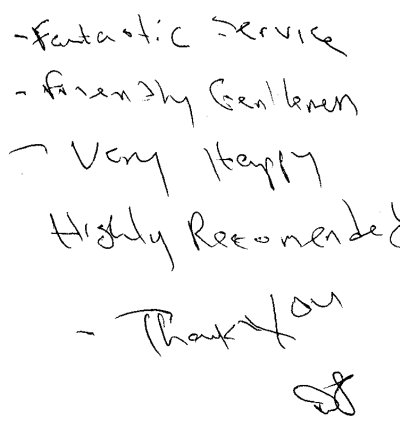 - Fantastic Service
- Friendly Gentlemen
- Very Happy
Highly Recomended
- Thank You